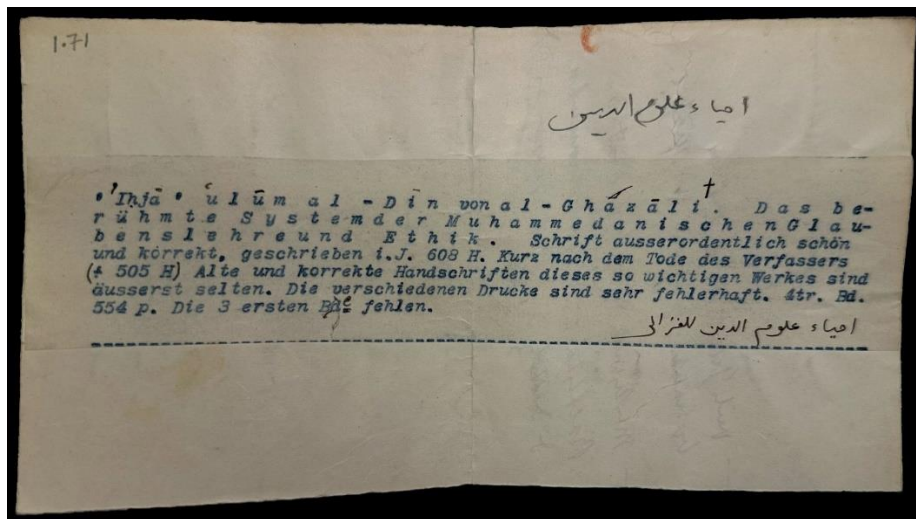 1.71
احياء علوم الدين
'Iḥjā' 'ulūm al-Dīn von al-Ghāzāli†. Das be-
rühmte System der Muhammedanischen Glau-
benslehre und Ethik. Schrift ausserordentlich schön
und korrekt, geschrieben i.J. 608 H. Kurz nach dem Tode des Verfassers
(+ 505 H) Alte und korrekte Handschriften dieses so wichtigen Werkes sind
äusserst selten. Die verschiedenen Drucke sind sehr fehlerhaft. 4tr. Bd.
554 p. Die 3 ersten Bde fehlen.
احياء علوم الدين للغزالى